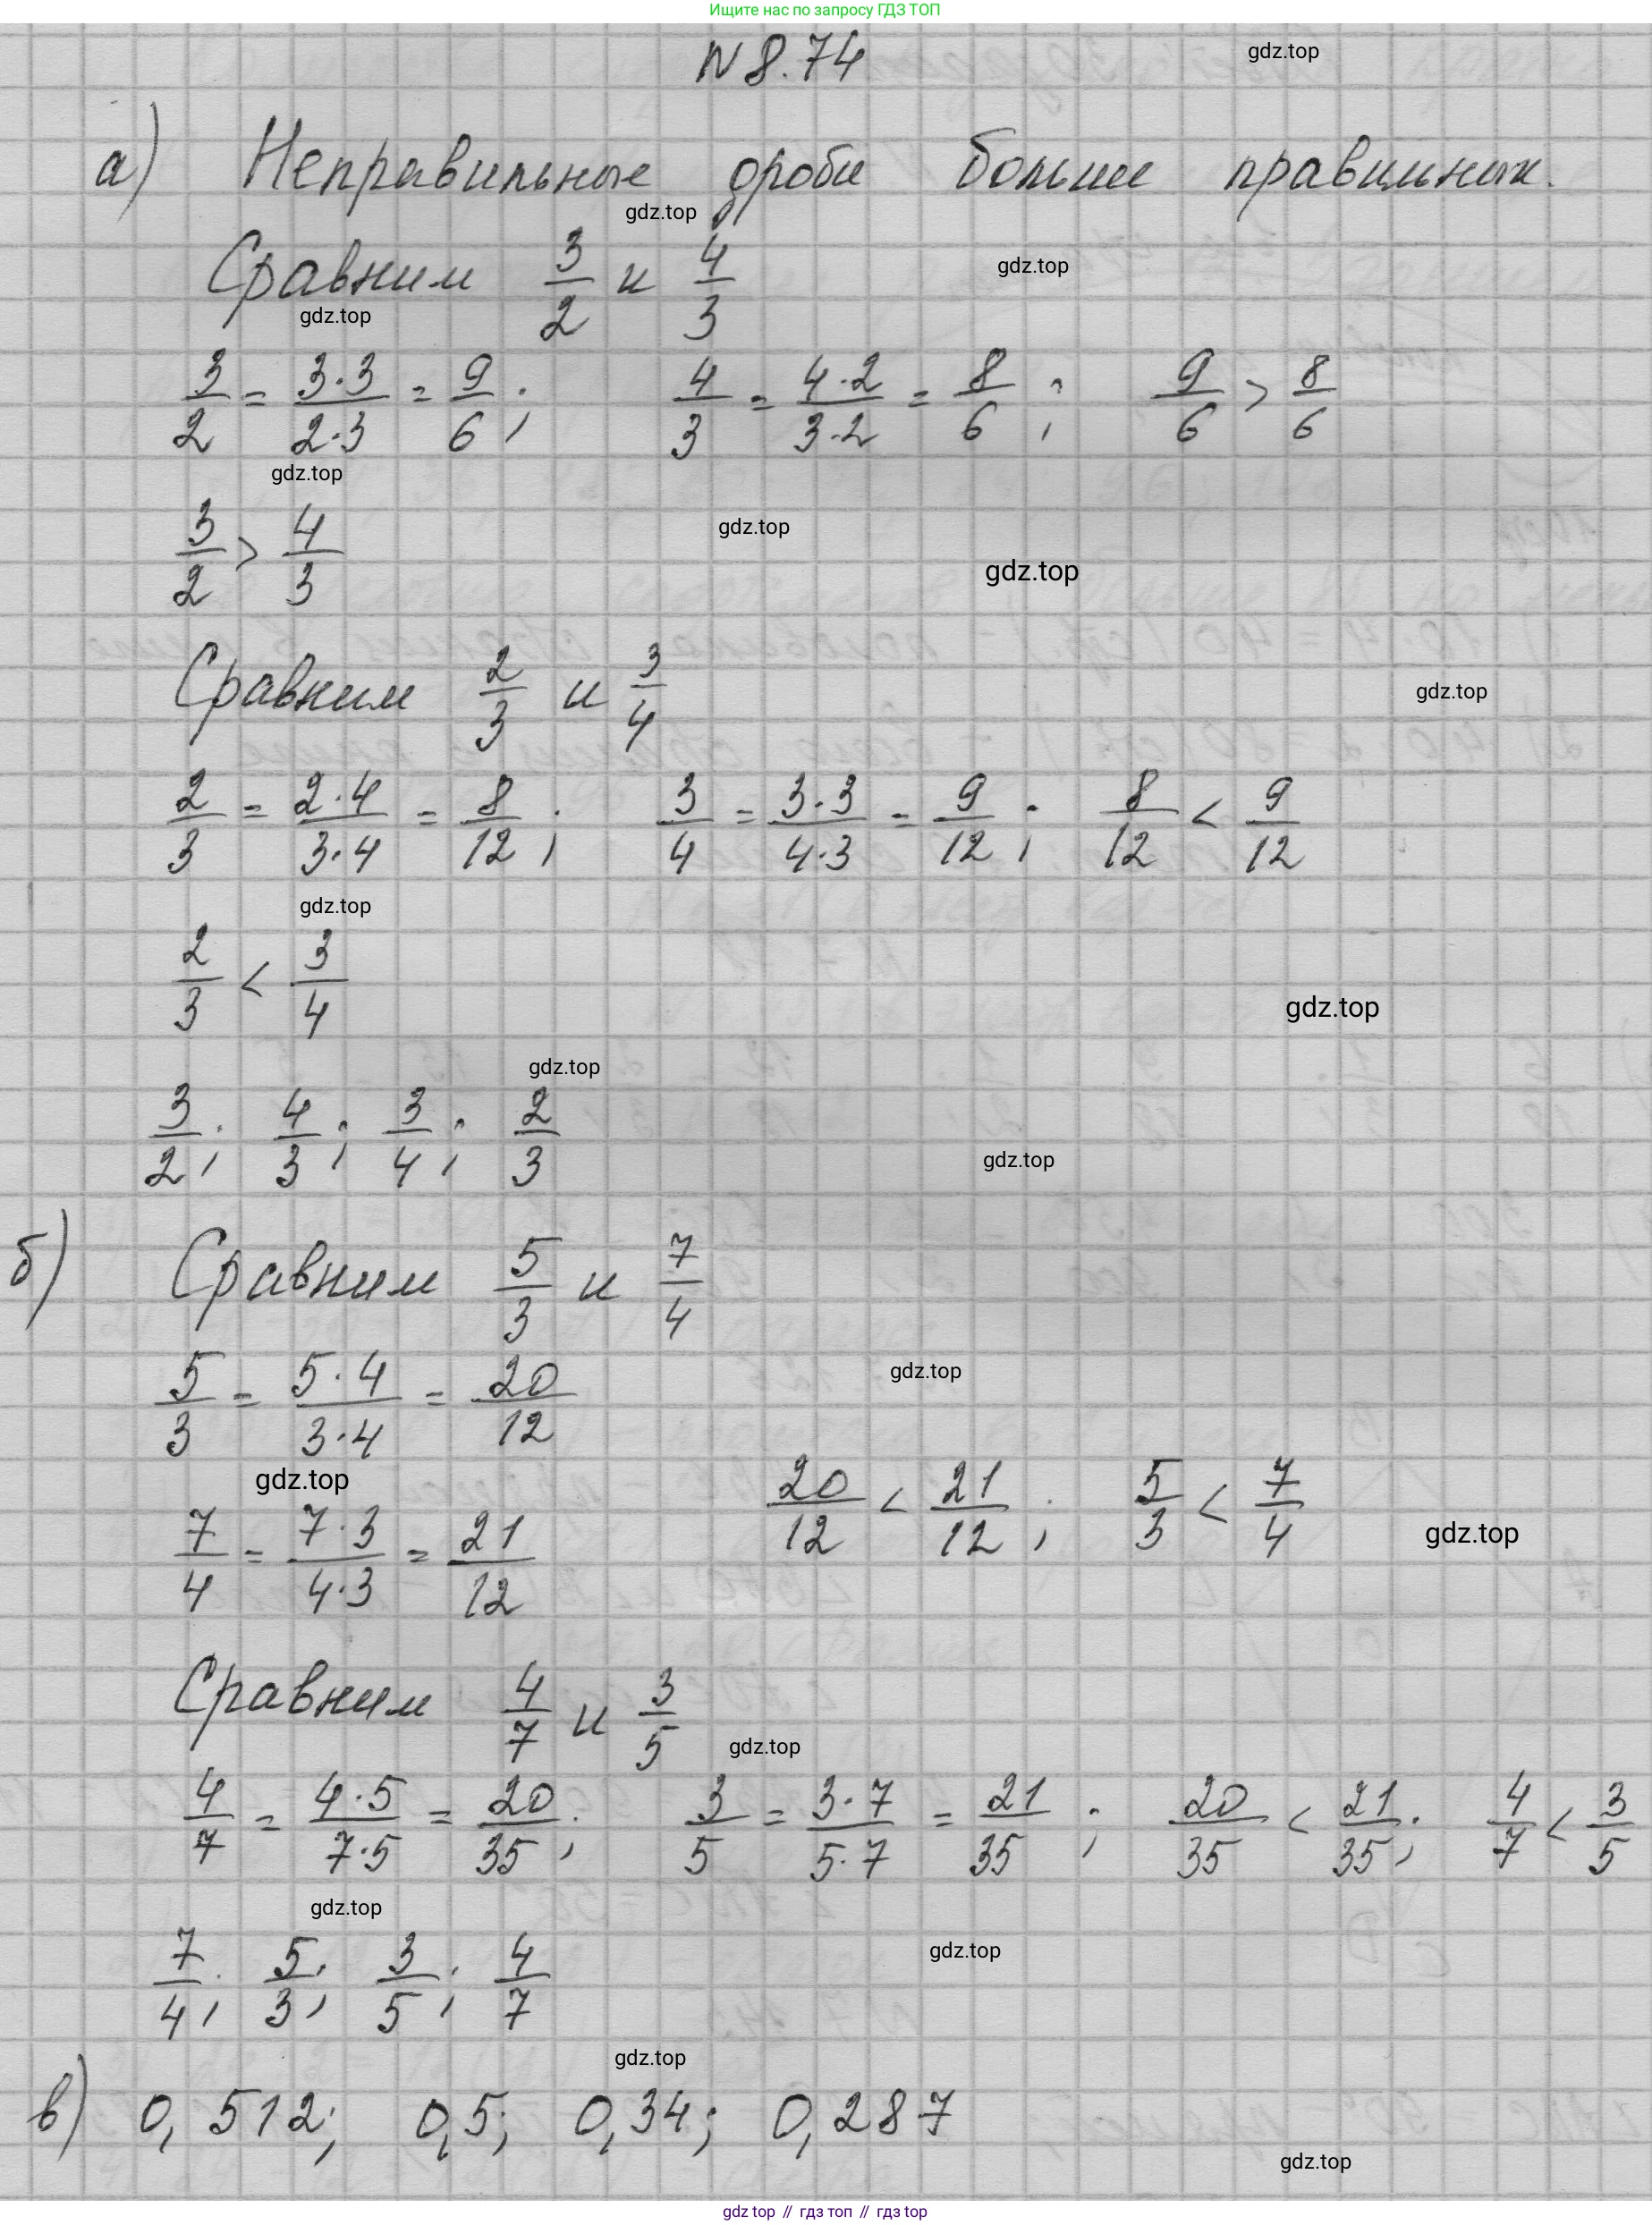 Ищите нас по запросу ГДЗ ТОП
N 8.74
gdz.top
а) Неправильные дроби больше правильных.
gdz.top
Сравним 3/2 и 4/3
gdz.top
gdz.top
3/2 = 3·3/2·3 = 9/6; 4/3 = 4·2/3·2 = 8/6; 9/6 > 8/6
gdz.top
3/2 > 4/3
gdz.top
gdz.top
Сравним 2/3 и 3/4
gdz.top
2/3 = 2·4/3·4 = 8/12; 3/4 = 3·3/4·3 = 9/12; 8/12 < 9/12
gdz.top
2/3 < 3/4
gdz.top
gdz.top
3/2; 4/3; 3/4; 2/3
gdz.top
б) Сравним 5/3 и 7/4
5/3 = 5·4/3·4 = 20/12
gdz.top
gdz.top
7/4 = 7·3/4·3 = 21/12
20/12 < 21/12; 5/3 < 7/4
gdz.top
Сравним 4/7 и 3/5
gdz.top
4/7 = 4·5/7·5 = 20/35; 3/5 = 3·7/5·7 = 21/35; 20/35 < 21/35; 4/7 < 3/5
gdz.top
7/4; 5/3; 3/5; 4/7
gdz.top
gdz.top
в) 0,512; 0,5; 0,34; 0,287
gdz.top
gdz top // гдз топ // гдз top